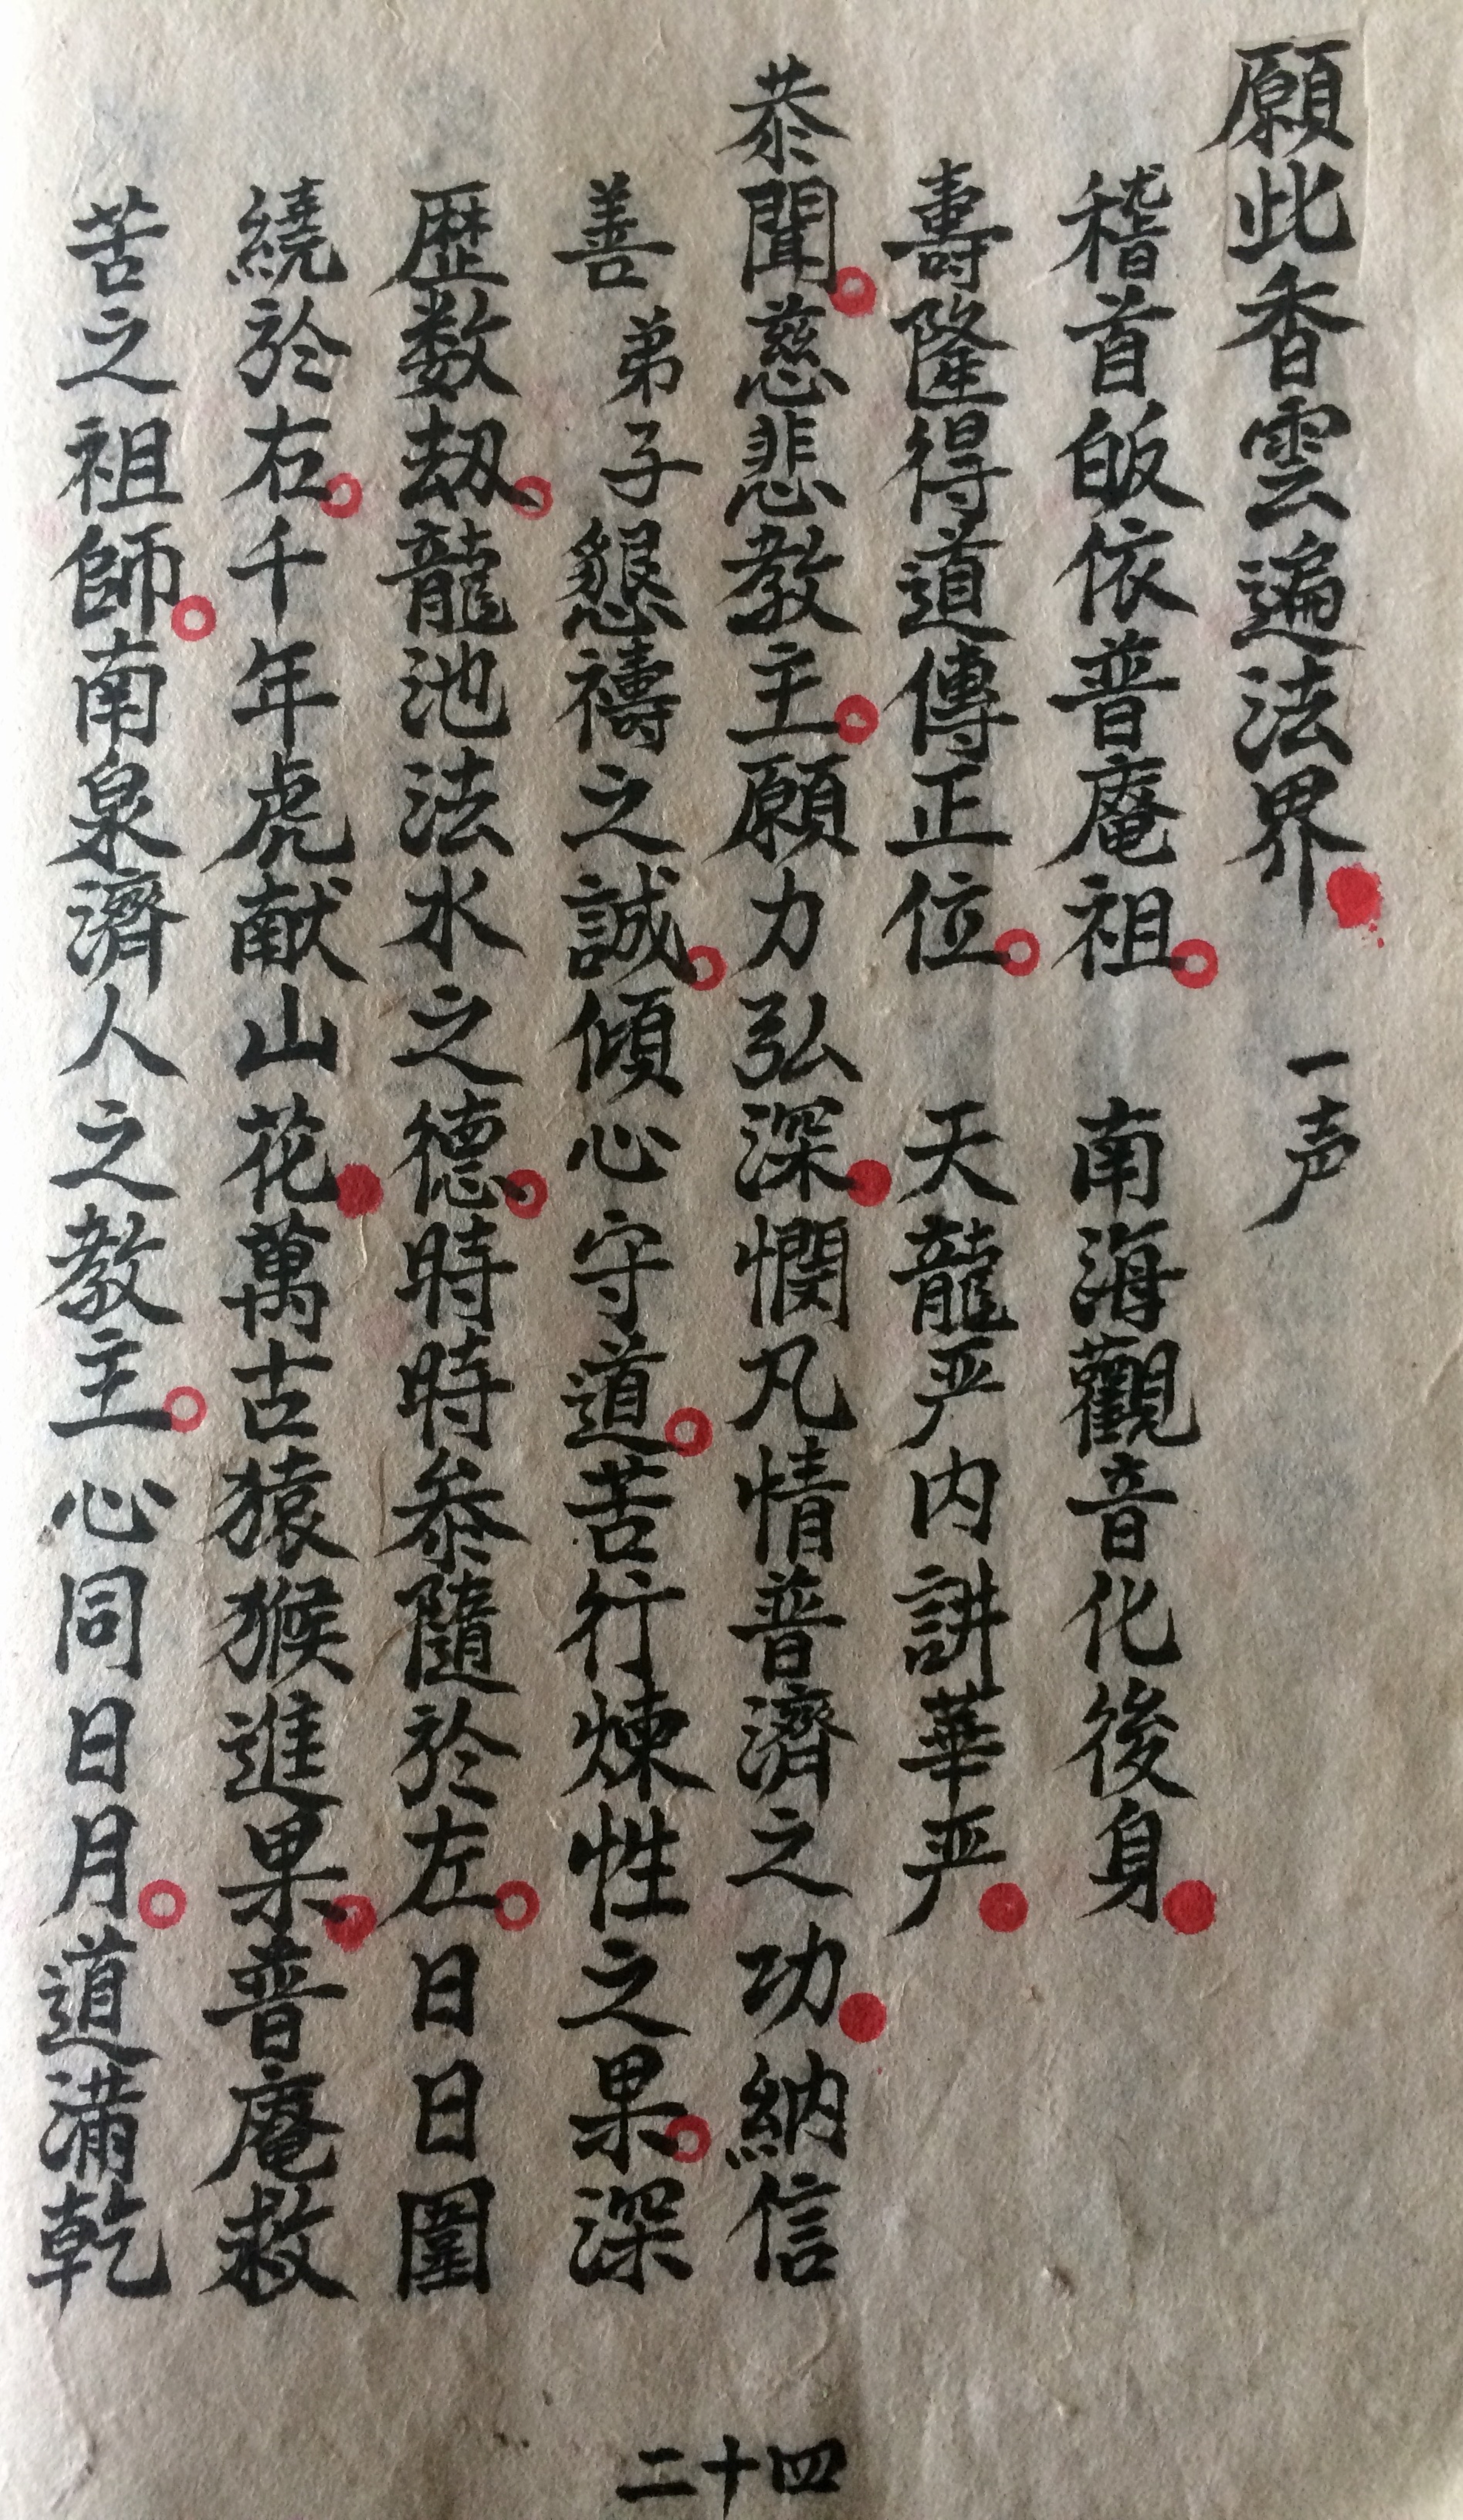 願此香雲遍法界 一声
稽首皈依普庵祖 南海觀音化後身
壽隆得道傳正位 天龍严内講華严
恭聞慈悲教主願力弘深憫凡情普濟之功納信
善弟子懇禱之誠傾心守道苦行煉性之果深
歷数劫龍池法水之德時時參隨於左日日圍
繞於右千年虎献山花萬古猿猴進果普庵救
苦之祖師南泉濟人之教主心同日月道滿乾
二十四